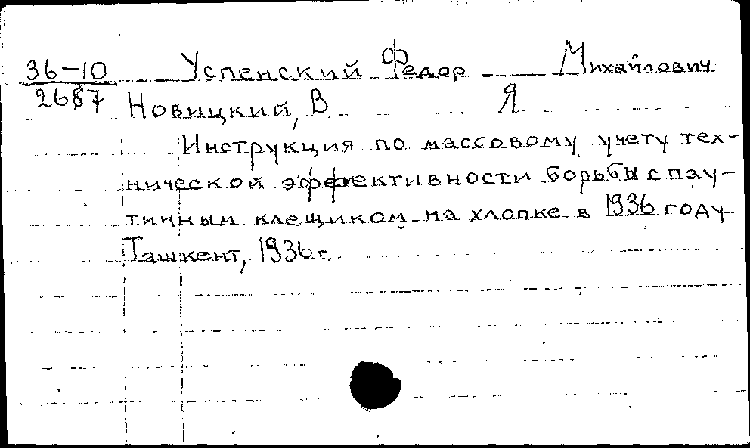 36-10 Успенский Федор Михайлович
2687 Новицкий, В Я
Инструкция по массовому учету тех-
нической эффективности борьбы с пау-
тинным клещиком на хлопке в 1936 году
Ташкент, 1936 г.